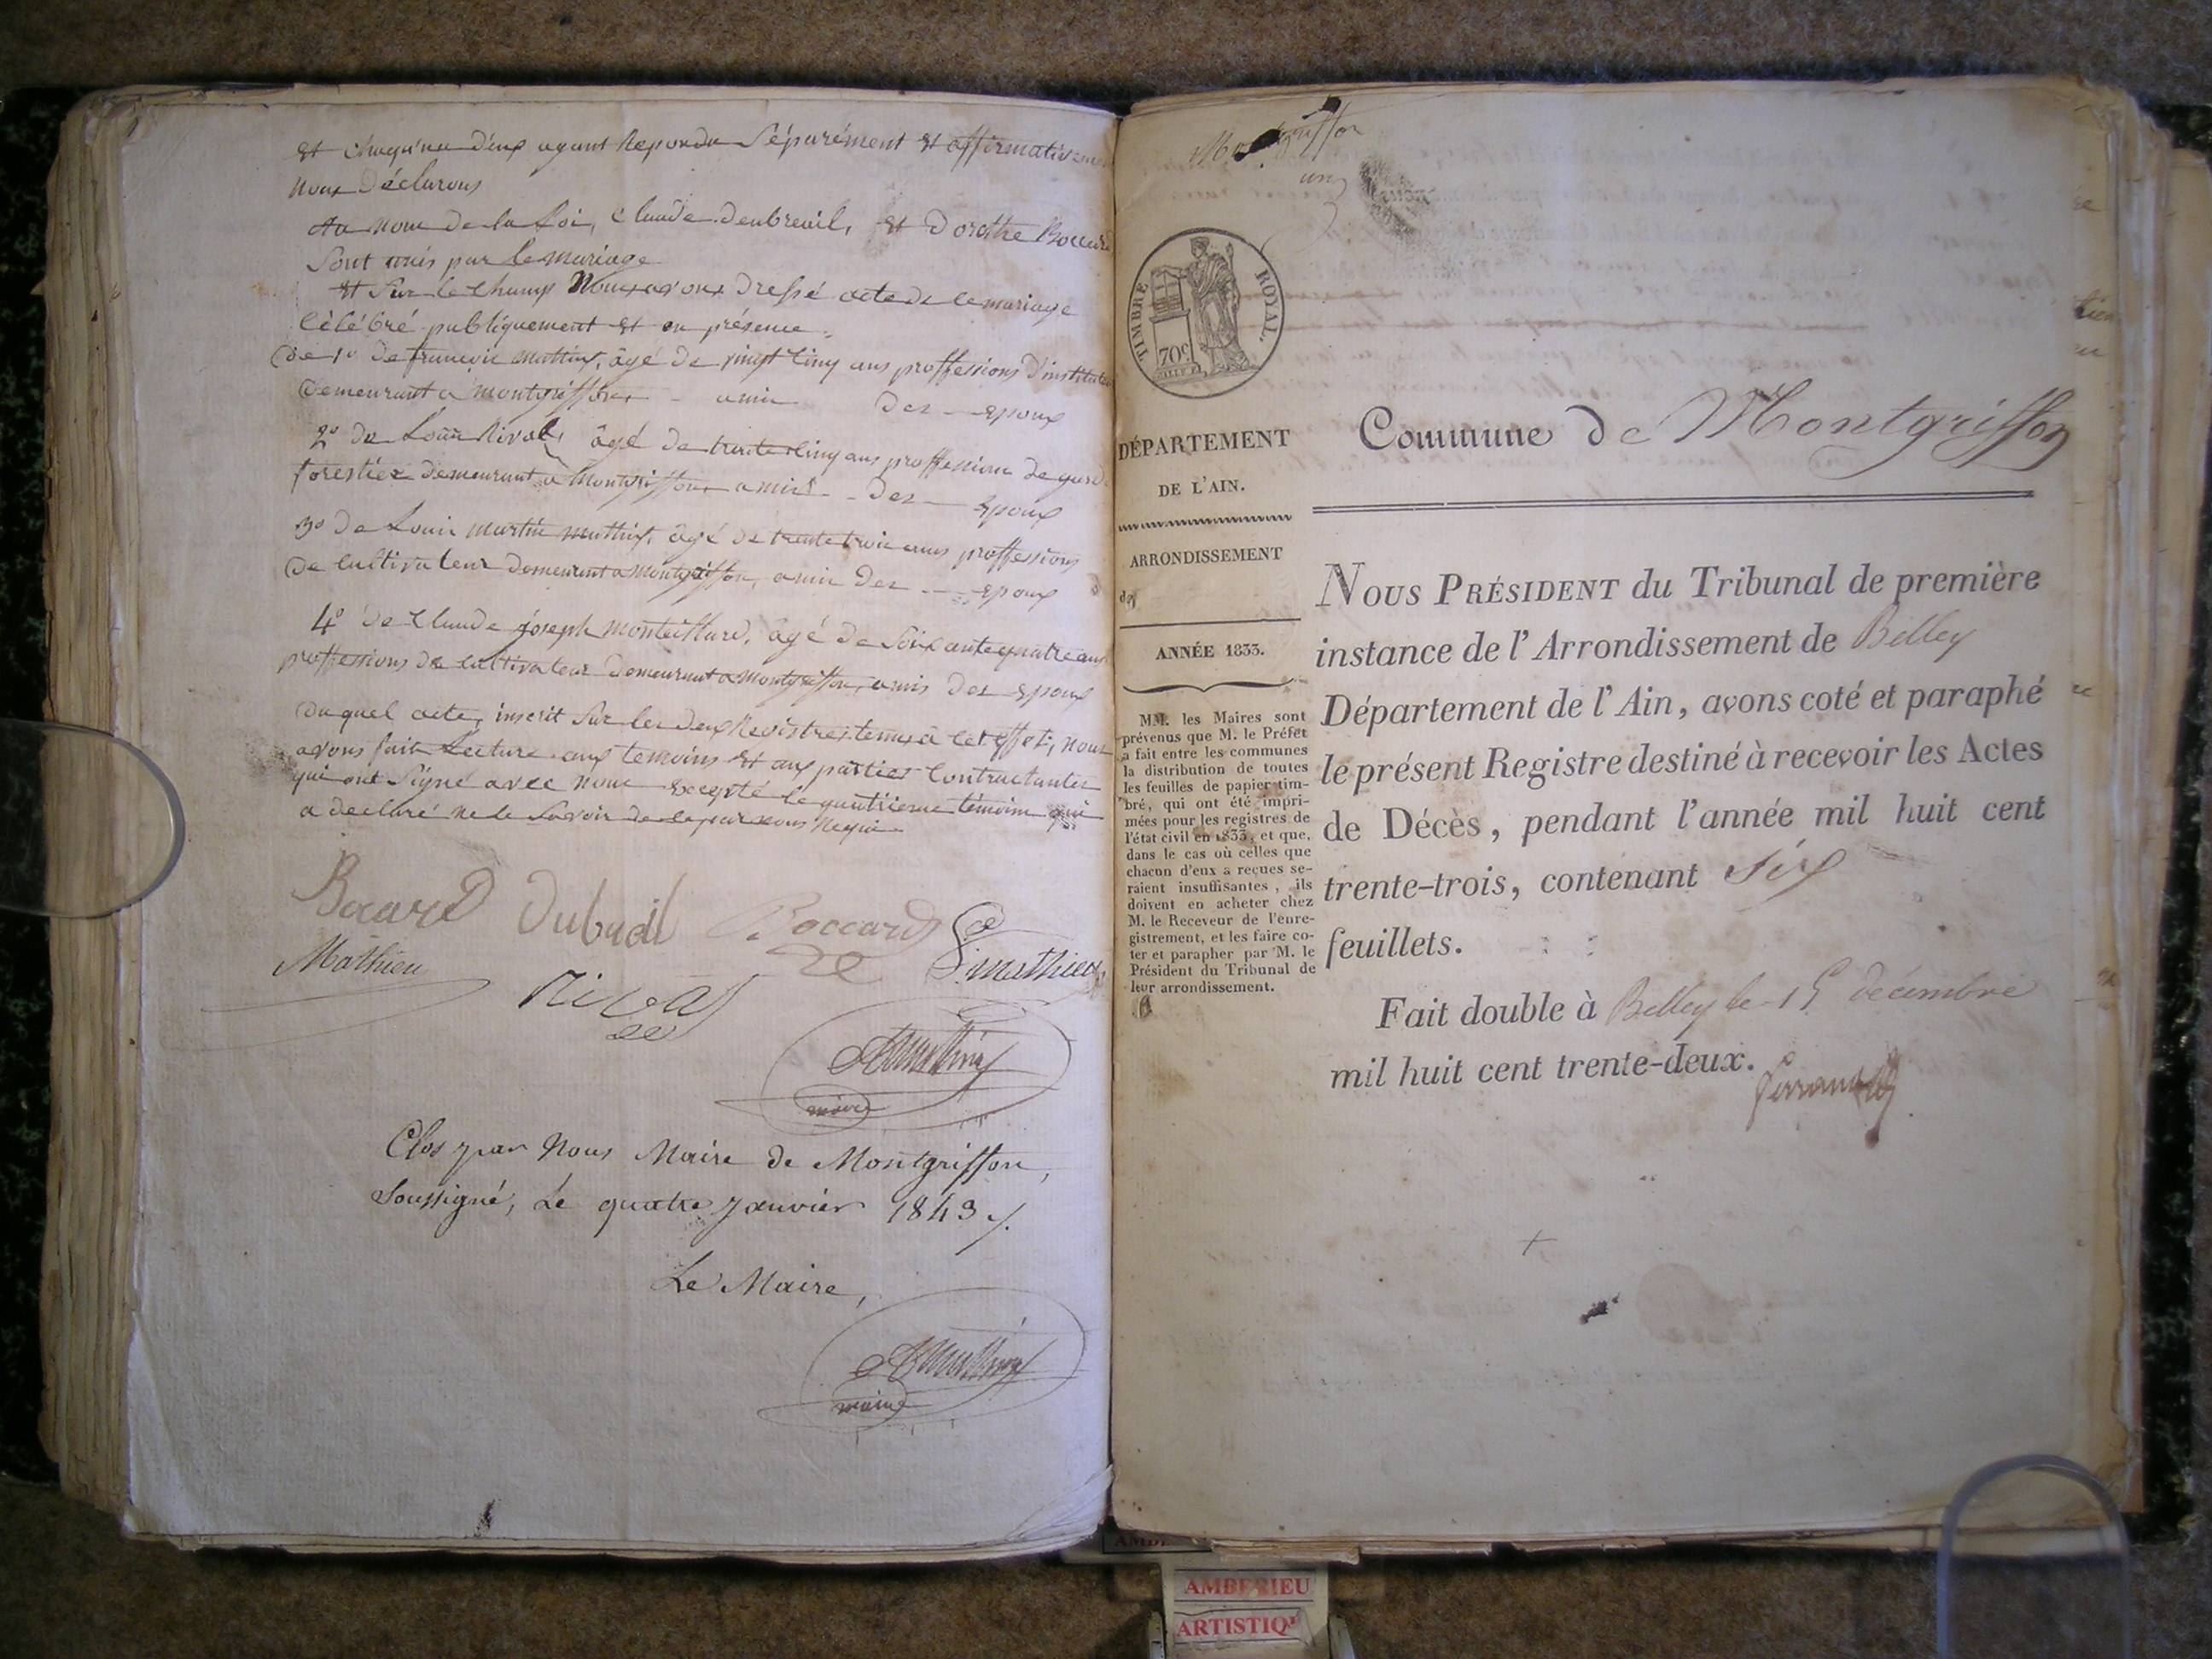 et chaqu'un d'eux ayant Repondu Séparément et affirmativement
nous déclarons
Au nom de la Loi, Claude deubreuil, et Dorothe Boccard
Sont unis par le mariage
et Sur le Champ Nous avons dressé acte de ce mariage
Célébré publiquement et en présence
de 1º de francois Mathieu, âgé de vingt cinq ans proffessions d'instituteur
demeurant a montgriffon amis des epoux
2º de Louis Rival, âgé de trente cinq ans proffession de garde
forestier demeurant a Montgriffon amis des Epoux
3º de Louis martin mathieu, âgé de trente trois ans proffessions
de Cultivateur demeurant a montgriffon, amis des epoux
4º de Claude joseph Monteillard, âgé de Soixante quatre ans
proffessions de cultivateur demeurant a montgriffon, amis des epoux
duquel acte, inscrit Sur les deux Registres tenus à cet effet, nous
avons fait Lecture aux temoins et aux parties Contractantes
qui ont Signé avec nous excepté le quatrieme témoin qui
a declaré ne le Savoir de ce par nous Requis
Bocard Dubudil Boccard
Mathieu Rival L. mathieu
maire
Clos par Nous Maire de Montgriffon,
Soussigné, Le quatre Janvier 1843
Le Maire,
maire
Montgriffon
un
TIMBRE ROYAL.
70c.
DÉPARTEMENT
DE L'AIN.
ARRONDISSEMENT
de
ANNÉE 1833.
MM. les Maires sont
prévenus que M. le Préfet
a fait entre les communes
la distribution de toutes
les feuilles de papier tim-
bré, qui ont été impri-
mées pour les registres de
l'état civil en 1833, et que,
dans le cas où celles que
chacun d'eux a reçues se-
raient insuffisantes, ils
doivent en acheter chez
M. le Receveur de l'enre-
gistrement, et les faire co-
ter et parapher par M. le
Président du Tribunal de
leur arrondissement.
Commune de Montgriffon
NOUS PRÉSIDENT du Tribunal de première
instance de l'Arrondissement de Belley
Département de l'Ain, avons coté et paraphé
le présent Registre destiné à recevoir les Actes
de Décès, pendant l'année mil huit cent
trente-trois, contenant Six
feuillets.
Fait double à Belley le 15 décembre
mil huit cent trente-deux.
AMBERIEU
ARTISTIQU